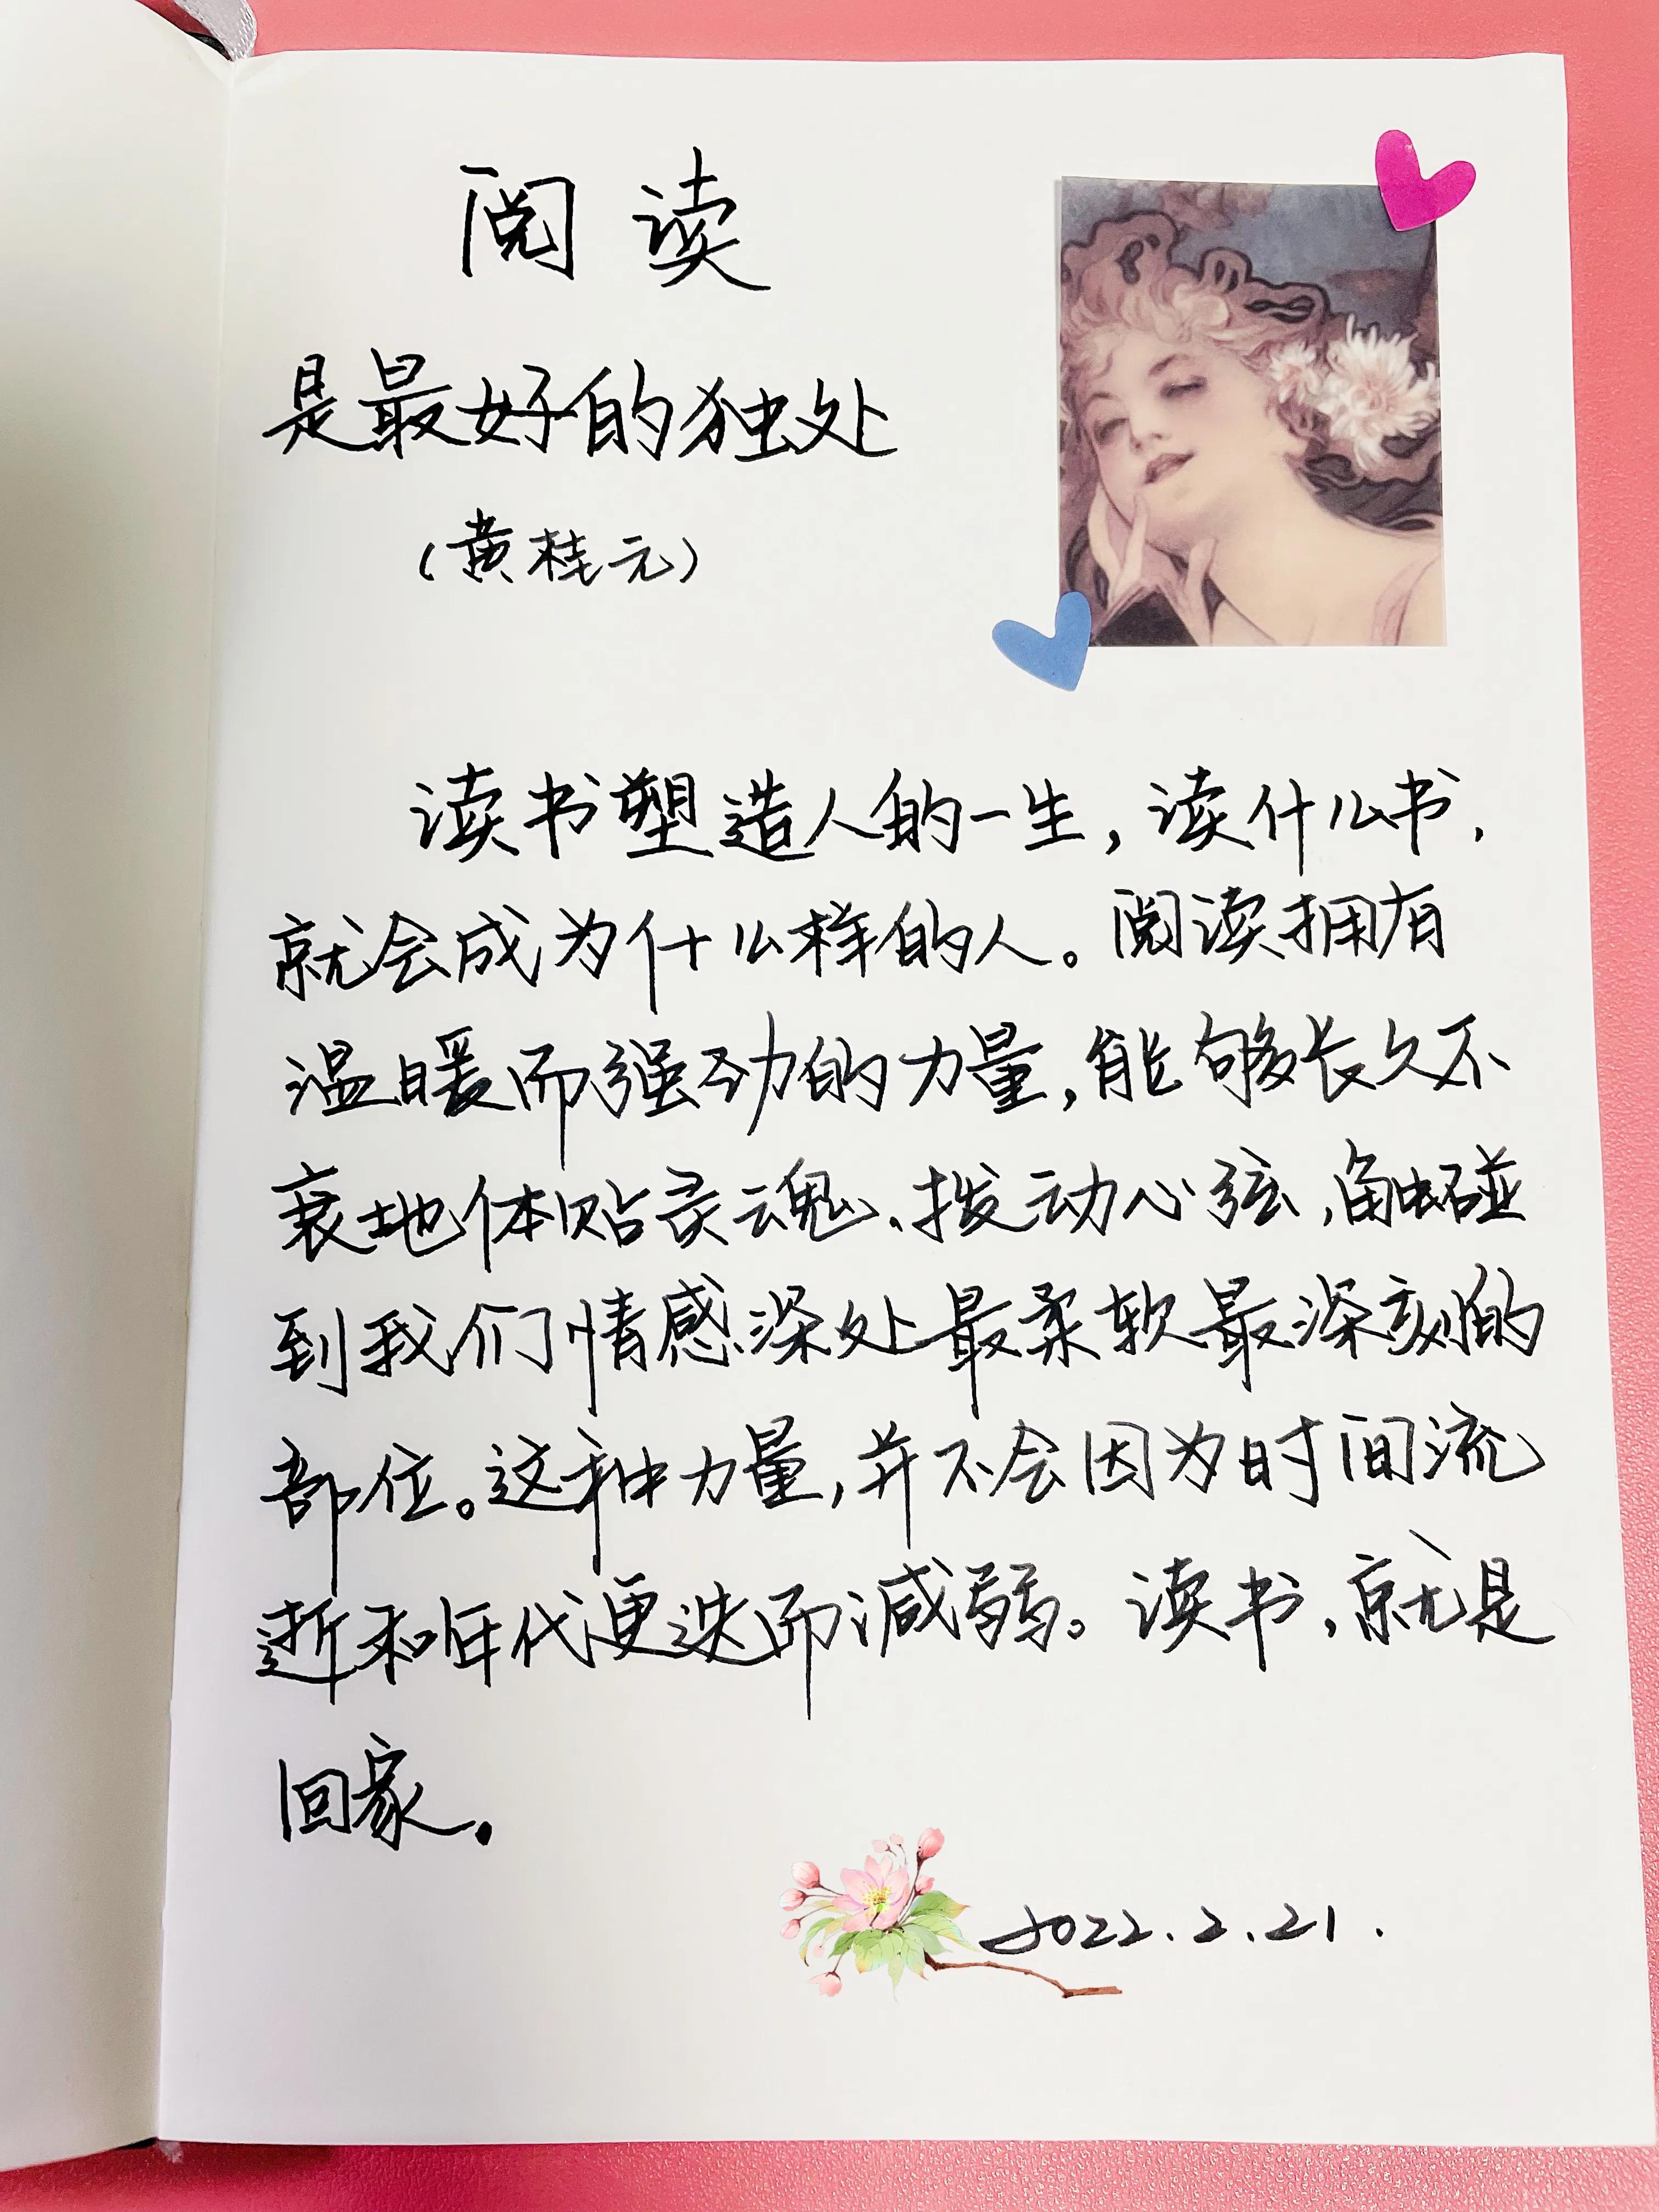 阅读
是最好的独处
（黄桂元）
读书塑造人的一生，读什么书，
就会成为什么样的人。阅读拥有
温暖而强劲的力量，能够长久不
衰地体贴灵魂、拨动心弦，触碰
到我们情感深处最柔软最深刻的
部位。这种力量，并不会因为时间流
逝和年代更迭而减弱。读书，就是
回家。
2022.2.21.